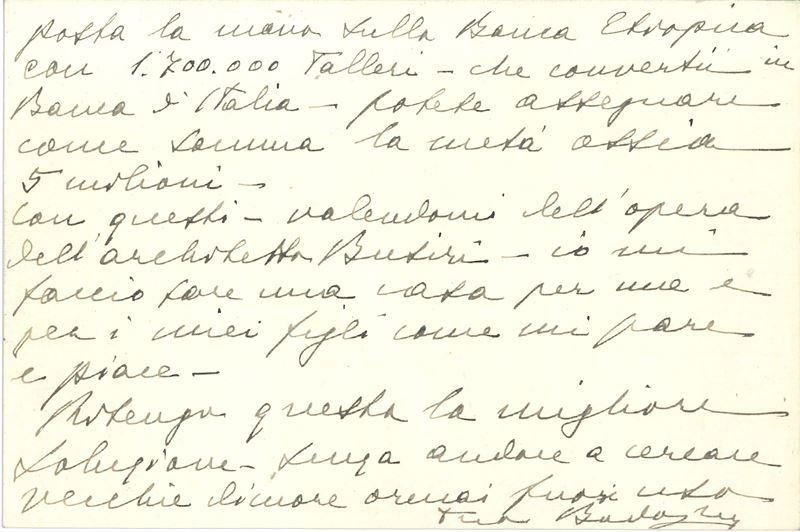 posta la mano sulla Banca Etiopica
con 1.700.000 Talleri – che convertii in
Banca d'Italia – potete assegnare
come somma la metà ossia
5 milioni –
Con questi – valendomi dell'opera
dell'architetto Busiri – io mi
faccio fare una casa per me e
per i miei figli come mi pare
e piace –
Ritengo questa la migliore
soluzione – senza andare a cercare
vecchie dimore ormai fuori uso
Badoglio